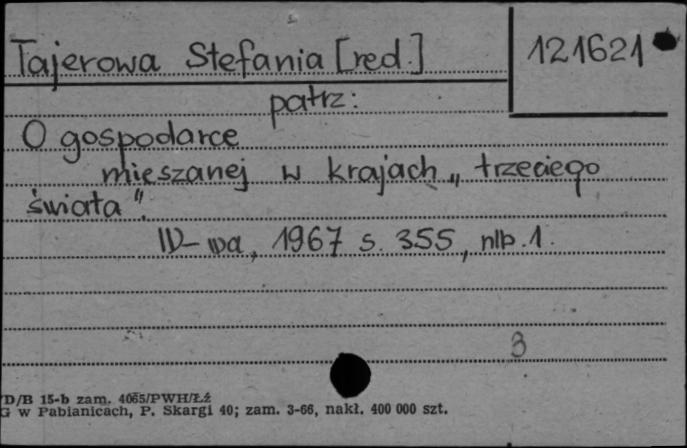 Tajerowa Stefania [red.]
121621
patrz:
O gospodarce
mieszanej w krajach „trzeciego
świata".
W-wa, 1967 s. 355, nlb. 1.
3
D/B 15-b zam. 4065/PWH/Łź
G w Pabianicach, P. Skargi 40; zam. 3-66, nakł. 400 000 szt.